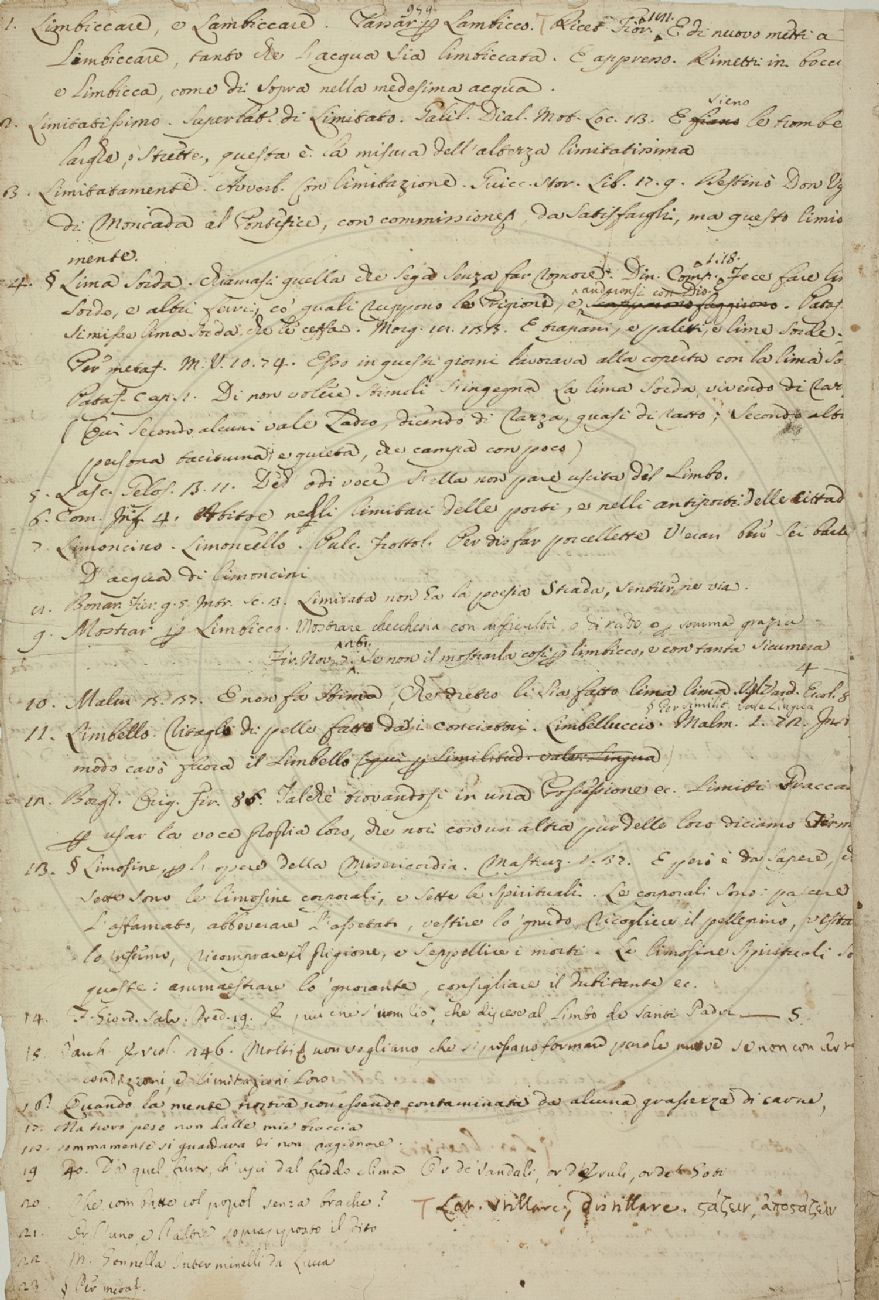 979. 141.
1. Limbiccare, e Lambiccare. Passar per Lambicco. Ricet. Fior. E di nuovo metti a
Limbiccare, tanto che l'acqua sia limbiccata. E appresso. Rimetti in bocci
e limbicca, come di sopra nella medesima acqua.
sieno
2. Limitatissimo. Superlat. di Limitato. Galil. Dial. Mot. Loc. 13. E siano le trombe
larghe, o strette, questa è la misura dell'altezza limitatissima
3. Limitatamente. Avverb. Con limitazione. Guicc. Stor. Lib. 17. 9. Restinò Don Ug
di Moncada al Pontefice, con commissione, da satisfargli, ma questo limit
mente.
1.18.
4. § Lima sorda. chiamasi quella che sega senza far romore. Din. Comp. Fece fare lim
andoronsi con Dio
sorde, e altri ferri, co' quali ruppono le Prigione, e fuggirono. Pataf.
Si mise lima sorda, che Morg. E trapani, e paletti, e lime sorde.
Per metaf. M. V. 10. 74. Esso in questi giorni lavorava alla coperta con la lima so
Pataf. Cap. 1. Di non volere stimoli s'ingegna La lima sorda, vivendo di raz
(Qui secondo alcuni vale Ladro, dicendo di razza, quasi di ratto; Secondo altri
persona taciturna, e quieta, che campa con poco)
5. Lasc. Gelos. 3. 11. Deh odi voce s'ella non pare uscita del Limbo.
6. Com. Inf. 4. Abitoe negli limitari delle porti, e nelli antiporti delle cittad
7. Limoncino. Limoncello. Pulc. Frottol. Per disfar porcellette V'ecan bere sei
D'acqua di limoncini
8. Bonar. Fier. g. 5. Intr. Sc. 3. Limitata non ha la poesia Strada, sentier, ne via.
9. Mostrar per Limbicco. Mostrare checchessia con difficultà, o di rado, o per somma grazia
Fir. Nov. 7. Se non il mostrarla così per limbicco, e con tanta sicumera
4
10. Malm. E non fa stima, che dreto li sia fatto lima lima.
§ Per similit. vale Lingua
11. Limbello. Ritaglio di pelle fatto da i conciatori. Limbelluccio. Malm. In si
modo cavò fuora il Limbello (qui per similitud. vale: Lingua)
12. Borgh. Orig. Fir. 86. Talchè trovandosi in una Possessione ec. Limiti Graccani
per usar la voce propria loro, che noi con un'altra pur delle loro diciamo Term
13. § Limosine, per li opere della Misericordia. Maestruz. 1. 37. E però è da sapere, ch
sette sono le limosine corporali, e sette le spirituali. Le corporali sono: pascere
l'affamato, abbeverare l'assetato, vestire lo gnudo, ricogliere il pellegrino, visita
lo infermo, ricomprare il prigione, e seppellire i morti. Le limosine spirituali so
queste: ammaestrare lo 'gnorante, consigliare il dubitante ec.
14. F. Giord. Salv. Pred. 19. che discese al Limbo de' Santi Padri — 5.
15. Varch. Ercol. 246. Molti non vogliano, che si possano formare parole nuove se non con
condizioni, e limitazioni loro
16. Quando la mente nostra non essendo contaminata da alcuna grassezza di carne,
17. Ma turo peso non dalle mie braccia
18. sommamente si guardava di non ragionare.
19 40. Da quel furor, ch'uscì dal freddo clima Or de' Vandali, or d'Eruli, or de' Goti
20. Che combatte col popol senza brache? T Lat. stillare, distillare. ςάζειν, ἀποςάζειν
21. Or l'uno, e l'altro soprapposto il dito
22. M. Gonnella
23. § Per metaf.